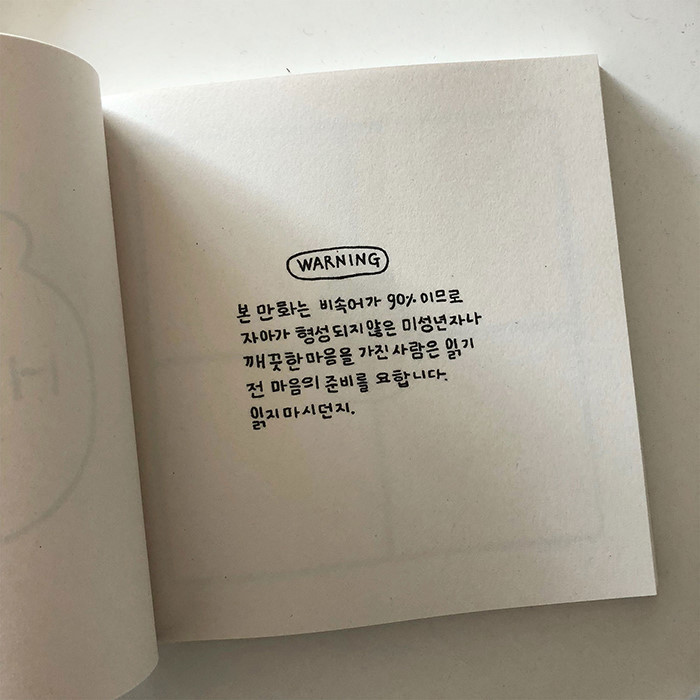 WARNING
본 만화는 비속어가 90% 이므로
자아가 형성되지 않은 미성년자나
깨끗한 마음을 가진 사람은 읽기
전 마음의 준비를 요합니다.
읽지마시던지.
H